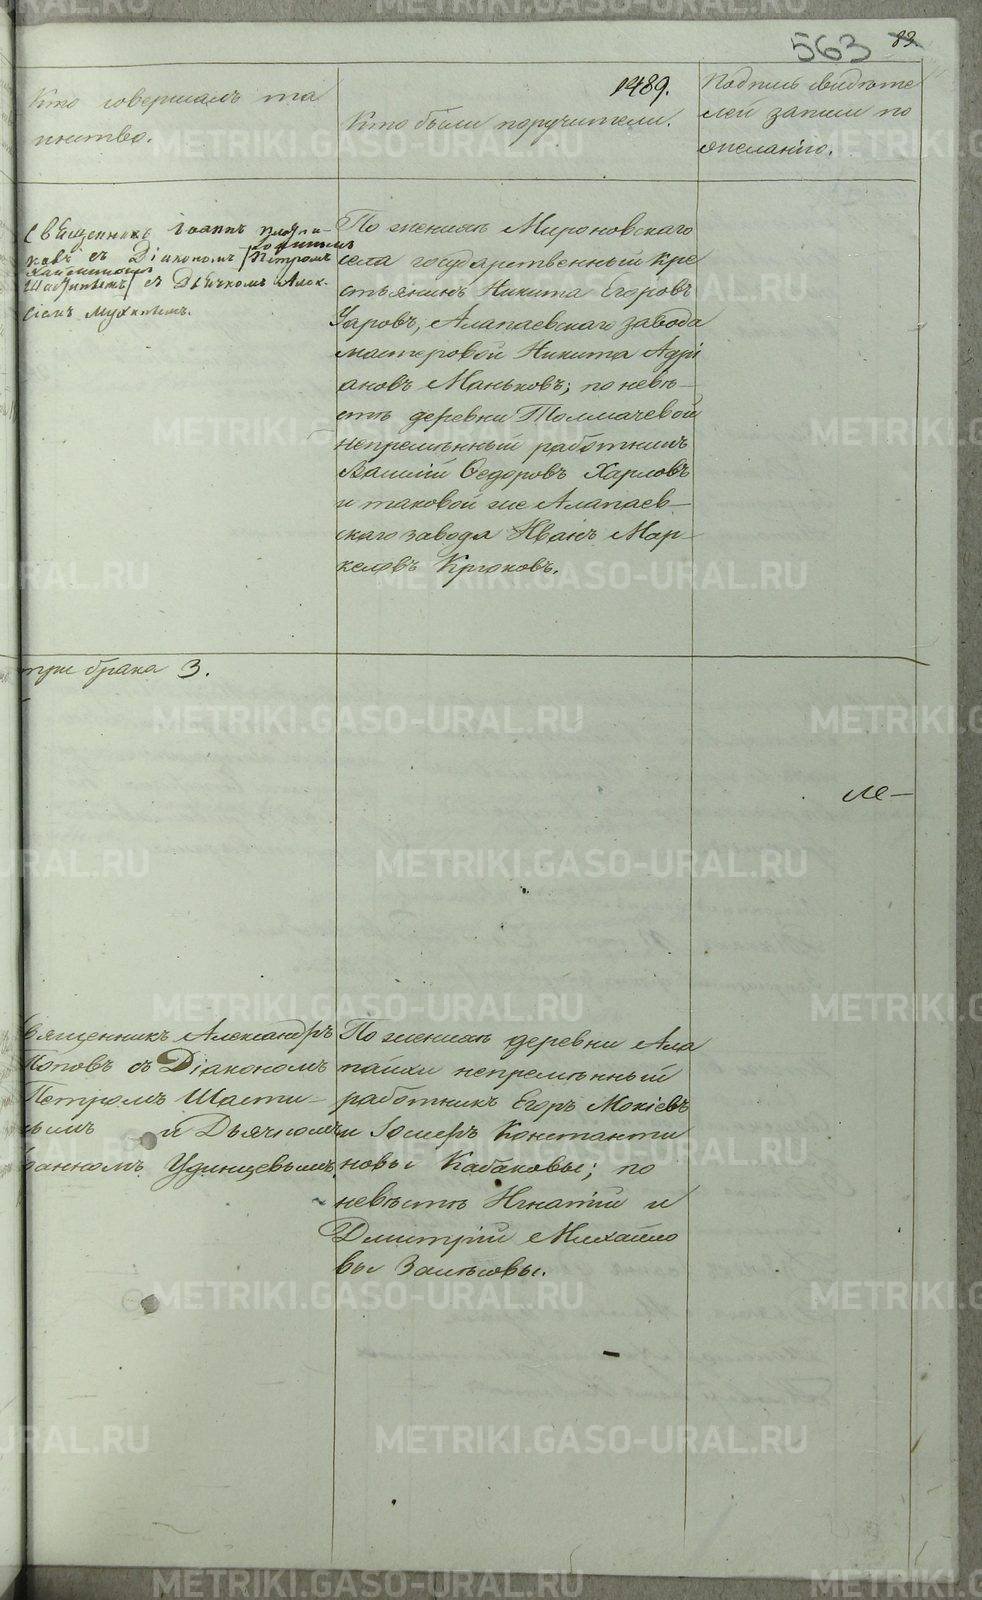 563
89.
Кто совершалъ та
инство.
1489.
Кто были поручители.
Подпись свидѣте
лей записи по
желанію.
Священникъ Іоаннъ
съ Діакономъ Петромъ
съ Дьячкомъ Алек-
сіемъ
По женихѣ Мироновскаго
села государственный кре
стьянинъ Никита Егоровъ
Уаровъ, Алапаевскаго завода
мастеровой Никита Адрі
ановъ Маньковъ; по невѣ-
стѣ деревни Толмачевой
непремѣнный работникъ
Василій Ѳедоровъ Харловъ
и таковой же Алапаев-
скаго завода Иванъ Мар-
келовъ Крюковъ.
три брака 3.
Священникъ Александръ
Поповъ съ Діакономъ
Петромъ Шасти-
нымъ и Дьячкомъ
Іоанномъ Удинцевымъ.
По женихѣ деревни Ала
паихи непремѣнный
работникъ Егоръ Мокіевъ
и Іосифъ Константи
новы Кабаковы; по
невѣстѣ Игнатій и
Дмитрій Михайло
вы
METRIKI.GASO-URAL.RU